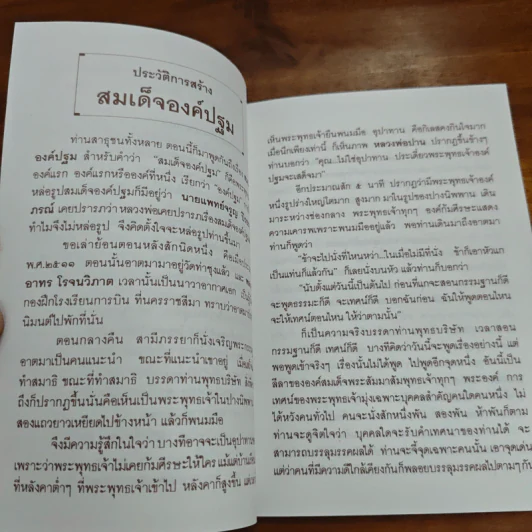 ประวัติการสร้าง
สมเด็จองค์ปฐม
ท่านสาธุชนทั้งหลาย ตอนนี้ก็มาพูดกันถึงเรื่อง
องค์ปฐม สำหรับคำว่า "สมเด็จองค์ปฐม" ก็คือพระพุทธ
องค์แรก องค์แรกหรือองค์ที่หนึ่ง เรียกว่า "องค์ปฐม"
หล่อรูปสมเด็จองค์ปฐมก็มีอยู่ว่า นายแพทย์จรูญ
ภรณ์ เคยปรารภว่า หลวงพ่อเคยปรารภเรื่องสมเด็จองค์
ทำไมจึงไม่หล่อรูป จึงคิดตั้งใจจะหล่อรูปท่านขึ้นมา
ขอเล่าย้อนตอนหลังสักนิดหนึ่ง คือเมื่อ
พ.ศ.๒๕๑๑ ตอนนั้นอาตมามาอยู่วัดท่าซุงแล้ว และ
อาทร โรจนวิภาต เวลานั้นเป็นนาวาอากาศเอก เป็น
กองฝึกโรงเรียนการบิน ที่นครราชสีมา ทราบว่าอาตมา
นิมนต์ไปพักที่นั่น
ตอนกลางคืน สามีภรรยาก็นั่งเจริญพระกรรมฐาน
อาตมาเป็นคนแนะนำ ขณะที่แนะนำเขาอยู่ เมื่อ
ทำสมาธิ ขณะที่ทำสมาธิ บรรดาท่านพุทธบริษัท
ถึงก็ปรากฏขึ้นนั่นคือเห็นเป็นพระพุทธเจ้าในปางนิพพาน
สองแถวยาวเหยียดไปข้างหน้า แล้วก็พนมมือ
จึงมีความรู้สึกในใจว่า บางทีอาจจะเป็นอุปาทาน
เพราะว่าพระพุทธเจ้าไม่เคยก้มศีรษะให้ใคร แม้แต่บ้าน
ที่หลังคาต่ำๆ ที่พระพุทธเจ้าเข้าไป หลังคาก็สูงขึ้น
เห็นพระพุทธเจ้ายืนพนมมือ อุปาทาน คือกิเลสคงกินใจมาก
เมื่อนึกเพียงเท่านี้ ก็เห็นภาพ หลวงพ่อปาน ปรากฏขึ้นข้างๆ
ท่านบอกว่า "คุณ..ไม่ใช่อุปาทาน ประเดี๋ยวพระพุทธเจ้าองค์
ปฐมจะเสด็จมา"
อีกประมาณสัก ๕ นาที ปรากฏว่ามีพระพุทธเจ้าองค์
หนึ่งรูปร่างใหญ่โตมาก สูงมาก มาในรูปของปางนิพพาน เดิน
มาระหว่างช่องกลาง พระพุทธเจ้าทุกๆ องค์ก้มศีรษะแสดง
ความเคารพเพราะพนมมืออยู่แล้ว พอท่านเดินมาถึงอาตมา
ท่านก็พูดว่า
"ข้าจะไปนั่งที่ไหนหว่า...ในเมื่อไม่มีที่นั่ง ข้าก็เอาหัวแก
เป็นแท่นก็แล้วกัน" ก็เลยนั่งบนหัว แล้วท่านก็บอกว่า
"นับตั้งแต่วันนี้เป็นต้นไป ก่อนที่แกจะสอนกรรมฐานก็ดี
จะพูดธรรมะก็ดี จะเทศน์ก็ดี บอกฉันก่อน ฉันให้พูดตอนไหน
จะให้เทศน์ตอนไหน ให้ว่าตามนั้น"
ก็เป็นความจริงบรรดาท่านพุทธบริษัท เวลาสอน
กรรมฐานก็ดี เทศน์ก็ดี บางทีคิดว่าวันนี้จะพูดเรื่องอย่างนี้ แต่
พอพูดเข้าจริงๆ เรื่องนั้นไม่ได้พูด ไปพูดอีกจุดหนึ่ง อันนี้เป็น
ลีลาขององค์สมเด็จพระสัมมาสัมพุทธเจ้าทุกๆ พระองค์ การ
เทศน์ของพระพุทธเจ้ามุ่งเฉพาะบุคคลสำคัญคนใดคนหนึ่ง ไม่
ได้หวังคนทั่วไป คนจะนั่งสักหนึ่งพัน สองพัน ห้าพันก็ตาม
ท่านจะดูจิตใจว่า บุคคลใดจะรับคำเทศนาของท่านได้ จะ
สามารถบรรลุมรรคผลได้ ท่านจะจี้จุดเฉพาะคนนั้น เอาจุดเด่น
แต่ว่าคนที่มีความดีใกล้เคียงกันก็พลอยบรรลุมรรคผลไปตามๆ กัน